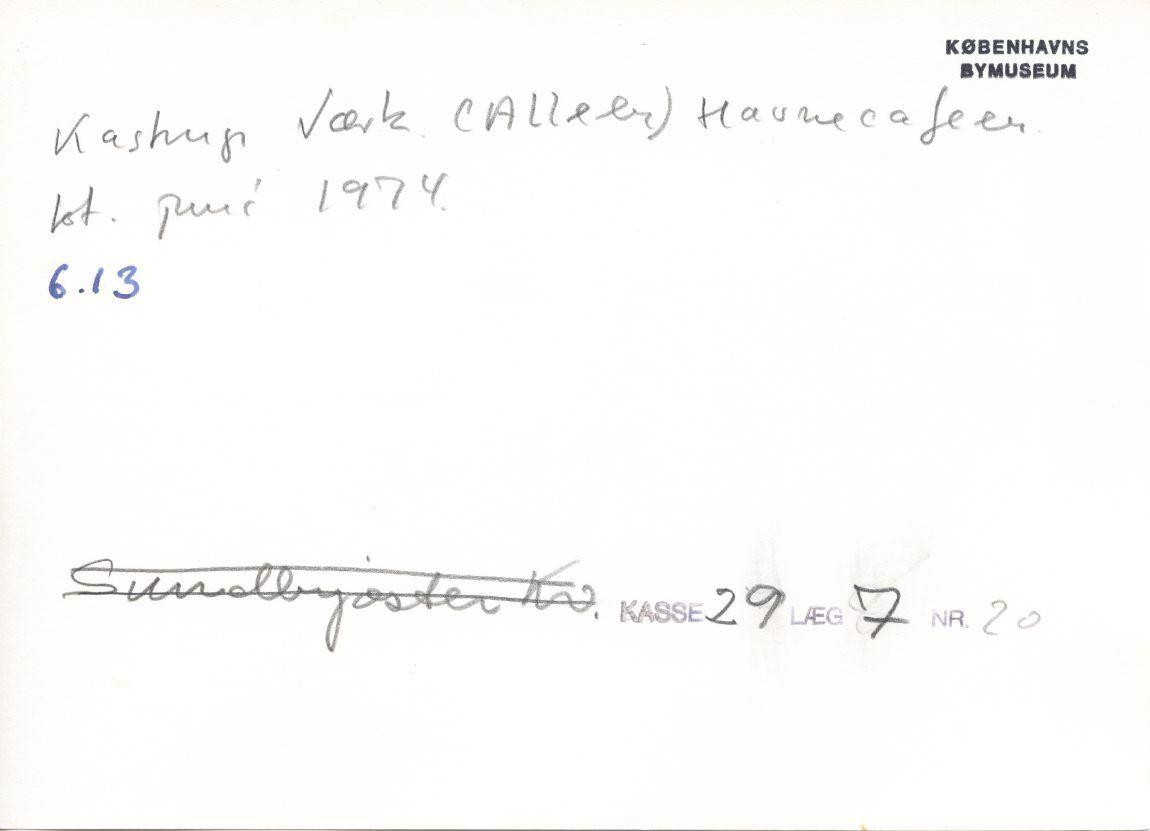 KØBENHAVNS
BYMUSEUM
Kastrup Værk. (Alleen) Havnecafeen.
fot. juni 1974.
6.13
Sundbyøster Kv. KASSE 29 LÆG 7 NR. 20